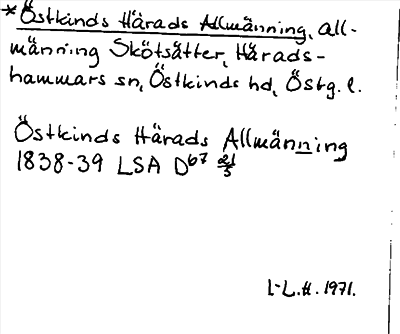 *Östkinds Härads Allmänning, all-
männing Skötsätter, Härads-
hammars sn, Östkinds hd, Östg. l.
Östkinds Härads Allmänning
1838-39 LSA D67 21/5
L-L.H. 1971.